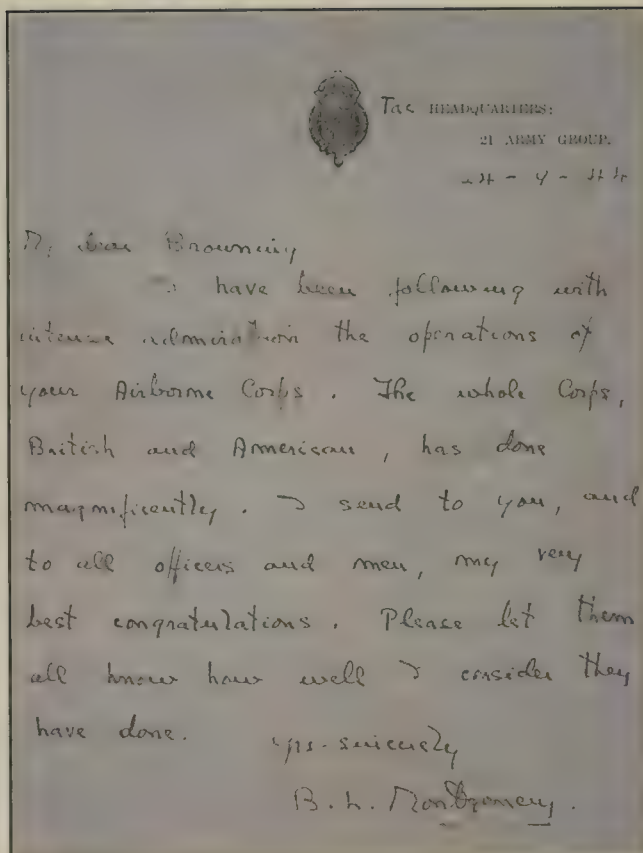 Tac HEADQUARTERS:
21 ARMY GROUP.
24 - 9 - 44
My dear Browning
I have been following with
intense admiration the operations of
your Airborne Corps. The whole Corps,
British and American, has done
magnificently. I send to you, and
to all officers and men, my very
best congratulations. Please let them
all know how well I consider they
have done.
Yrs. sincerely
B. L. Montgomery.